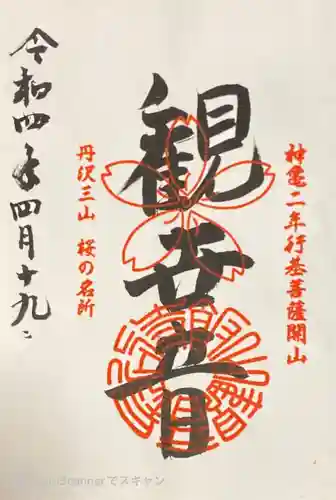 神亀二年行基菩薩開山
観音
丹沢三山 桜の名所
令和四年四月十九日
でスキャン